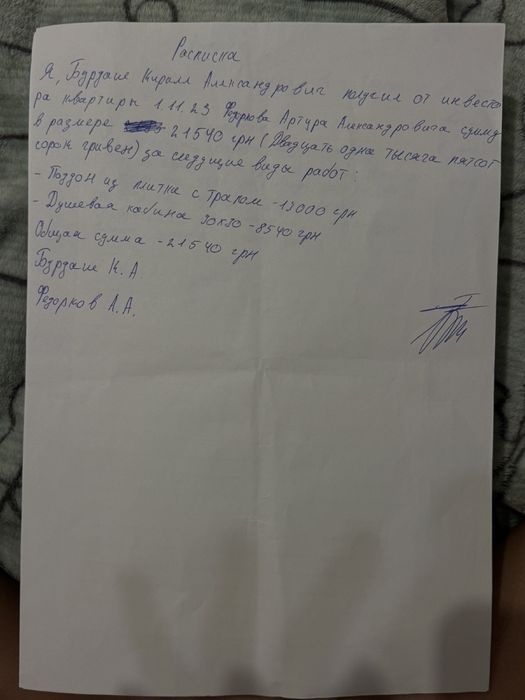 Расписка
Я, Бурдаше Кирилл Александрович получил от инвесто
ра квартири 1.11.23 Федоркова Артура Александровича сумму
в размере 21540 грн (Двадцать одна тысяча пятсот
сорок гривен) за следущие виды работ:
- Поддон из плитки с трапом -13000 грн
- Душевая кабина 90х90 -8540 грн
Общая сумма -21540 грн
Бурдаше К.А.
Федорков А.А.